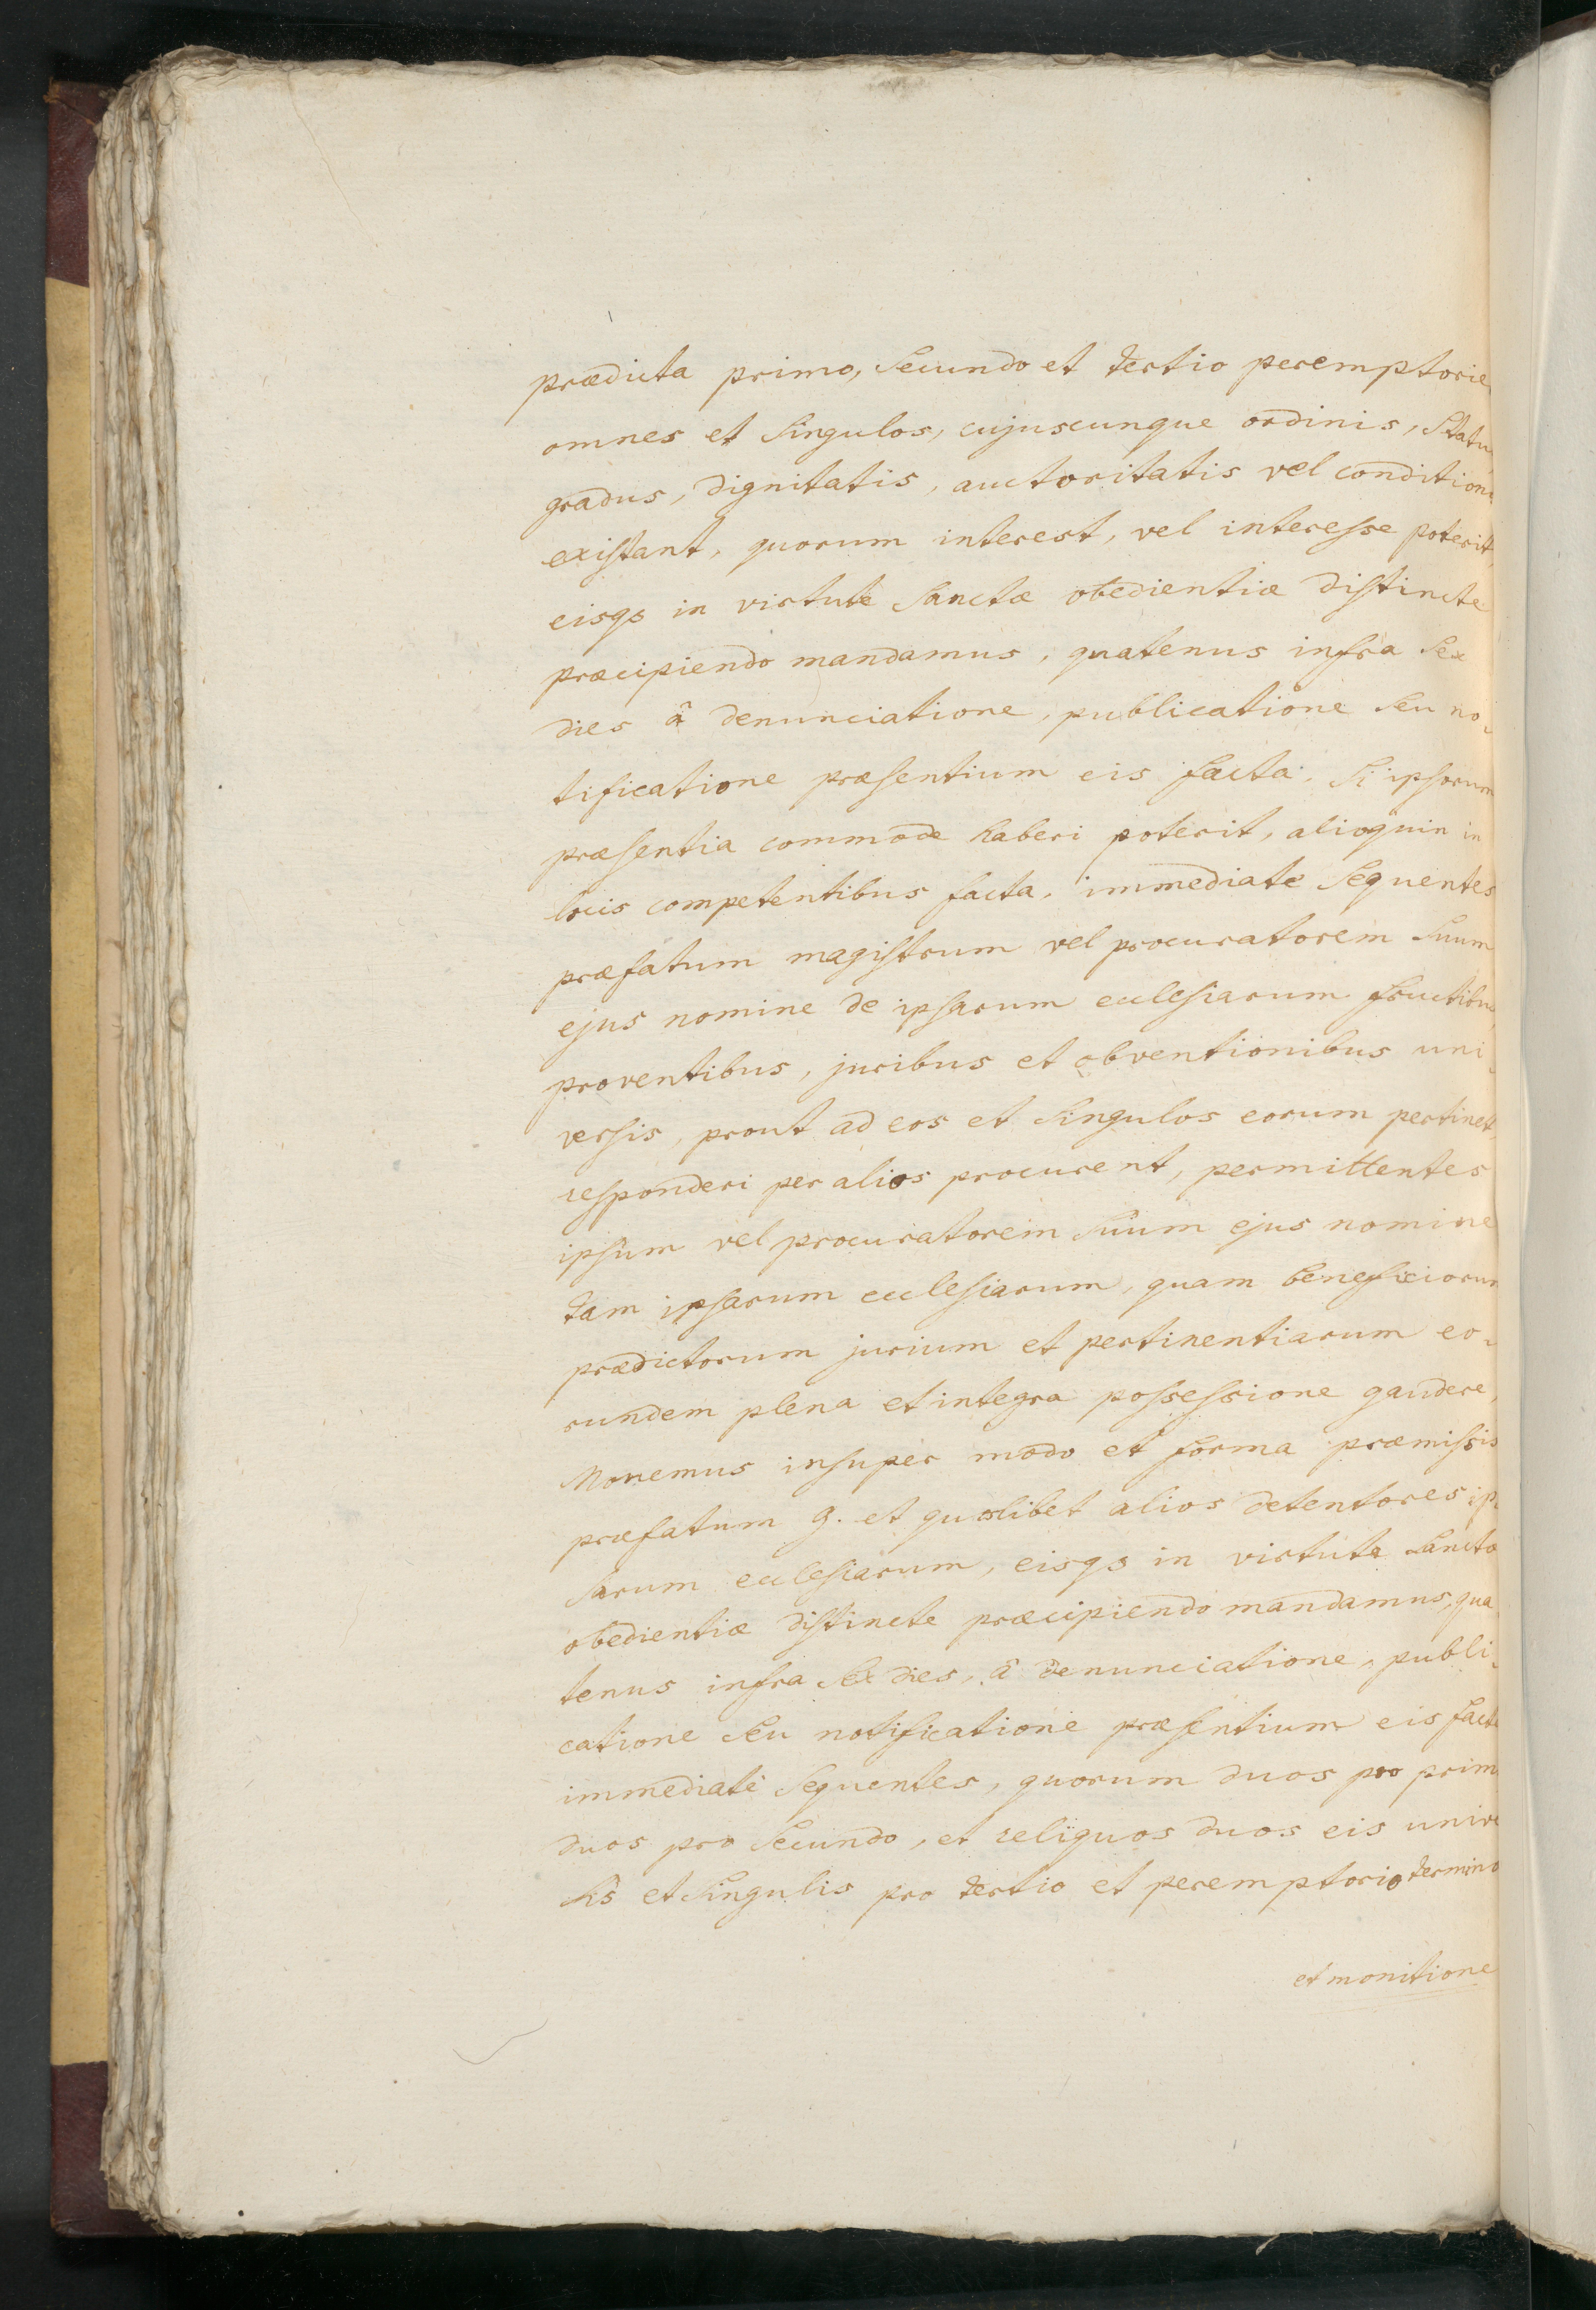 prædicta primo, secundo et tertio peremptorie
omnes et singulos, cujuscunque ordinis, statu
gradus, dignitatis, auctoritatis vel condition
existant, quorum interest, vel interesse poterit,
eisqs in virtute sanctæ obedientiæ distincte
præcipiendo mandamus, quatenus infra sex
dies â denunciatione, publicatione seu no-
tificatione præsentium eis facta, si ipsorum
præsentia commode haberi poterit, alioquin in
locis competentibus facta, immediate sequentes
præfatum magistrum vel procuratorem suum
ejus nomine de ipsarum ecclesiarum fructibus
proventibus, juribus et obventionibus uni-
versis, prout ad eos et singulos eorum pertinet,
responderi per alios procurent, permittentes
ipsum vel procuratorem suum ejus nomine
tam ipsarum ecclesiarum, quam beneficiorum
prædictorum jurium et pertinentiarum eo-
rundem plena et integra possessione gaudere,
Monemus insuper modo et forma præmissis
præfatum G. et quoslibet alios detentores ip-
sarum ecclesiarum, eisqs in virtute sanctæ
obedientiæ distincte præcipiendo mandamus, qua
tenus infra sex dies, â denunciatione, publi-
catione seu notificatione præsentium eis facta
immediate sequentes, quorum duos pro primo
duos pro secundo, et reliquos duos eis univer
sis et singulis pro tertio et peremptorio termino
et monitione